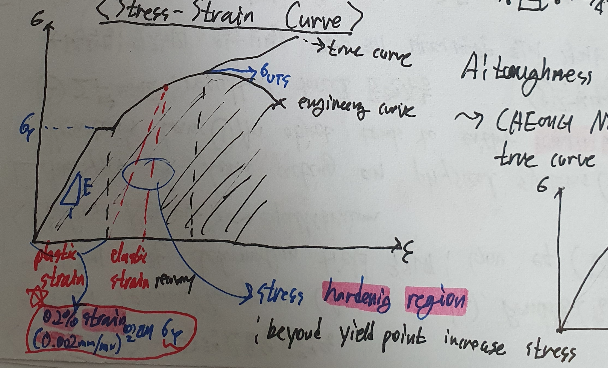 <Stress-Strain Curve>
σ
true curve
σUTS
engineering curve
σY
E
ε
plastic
strain
elastic
strain recovery
0.2% strain
(0.002mm/mm)
σY
stress hardenig region
; beyond yield point increase stress
A: toughness
true curve
σ